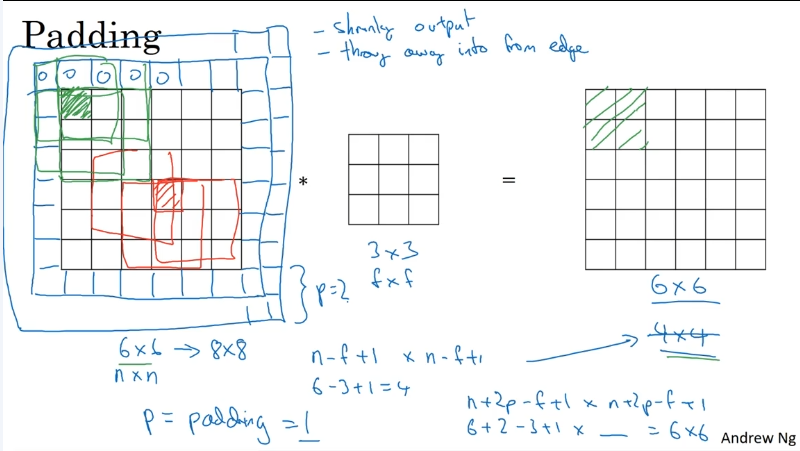 Padding
- shrinky output
- throw away info from edge
0 0 0 0 0
*
=
3 x 3
f x f
p=2
6 x 6
4 x 4
6 x 6 → 8x8
n x n
n-f+1 x n-f+1
6-3+1=4
p = padding = 1
n+2p-f+1 x n+2p-f+1
6+2-3+1 x __ = 6x6
Andrew Ng